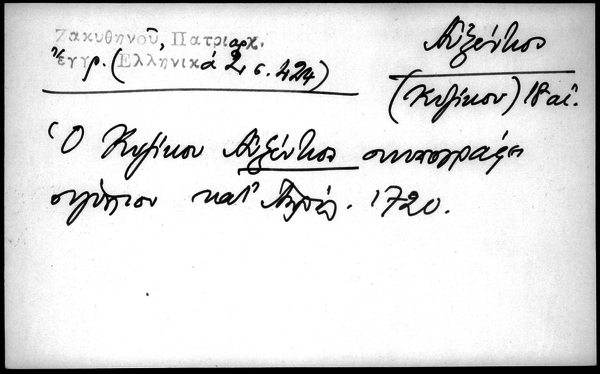 Ζακυθηνοῦ, Πατριαρχ.
ἔγγρ. (Ἑλληνικά 2, σ. 424)
Αὐξέντιος
(Κυζίκου) 18 αἰ.
Ὁ Κυζίκου Αὐξέντιος συνυπογράφει
σιγίλλιον κατ' Ἀπρίλ. 1720.